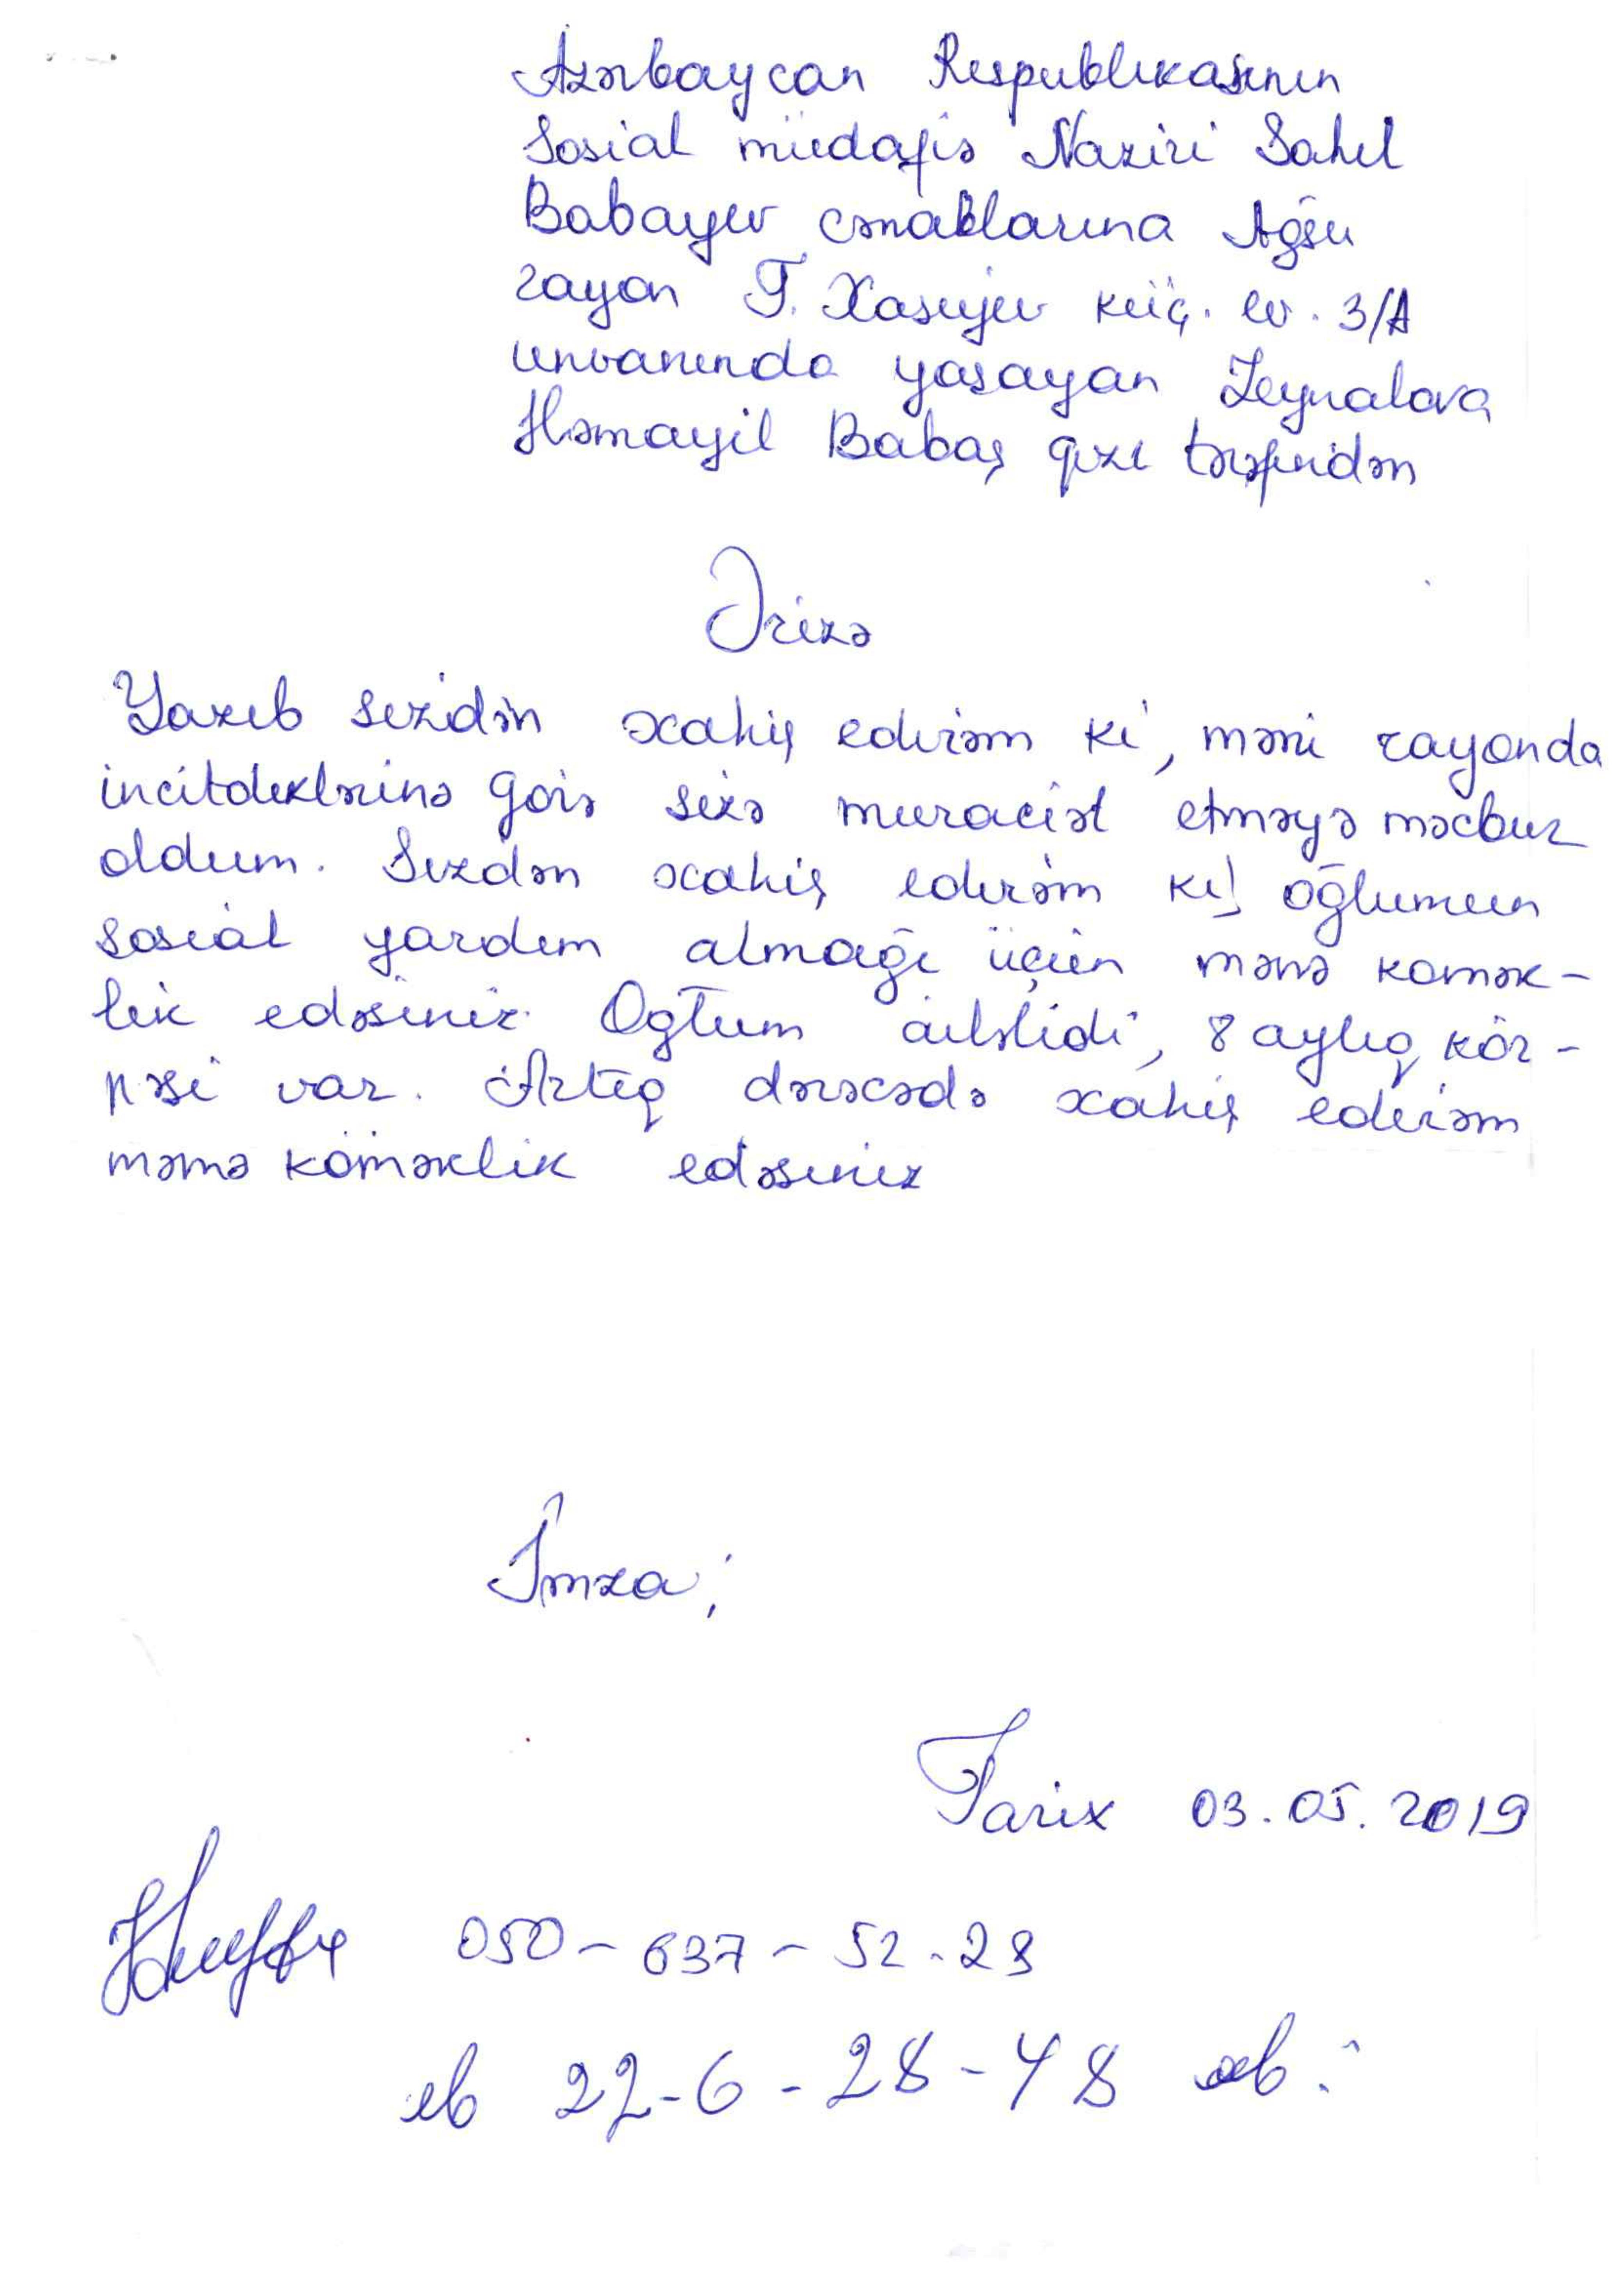 Azərbaycan Respublikasının
Sosial müdafiə Naziri Sahil
Babayev cənablarına Ağsu
rayon T. Xasıyev küç. ev. 3/A
unvanında yaşayan Zeynalova
Həmayil Babaş qızı tərəfindən
Ərizə
Yazıb sizidən xahiş edirəm ki, məni rayonda
incitdiklərinə görə sizə muraciət etməyə məcbur
oldum. Sizdən xahiş edirəm ki, oğlumun
sosial yardım almağı üçün mənə komək-
lik edəsiniz. Oğlum ailəlidi, 8 aylıq kör-
pəsi var. Artıq dərəcədə xahiş edirəm
mənə köməklik edəsiniz
İmza;
Tarix 03.05.2019
050-637-52-28
eb 22-6-28-48 eb: